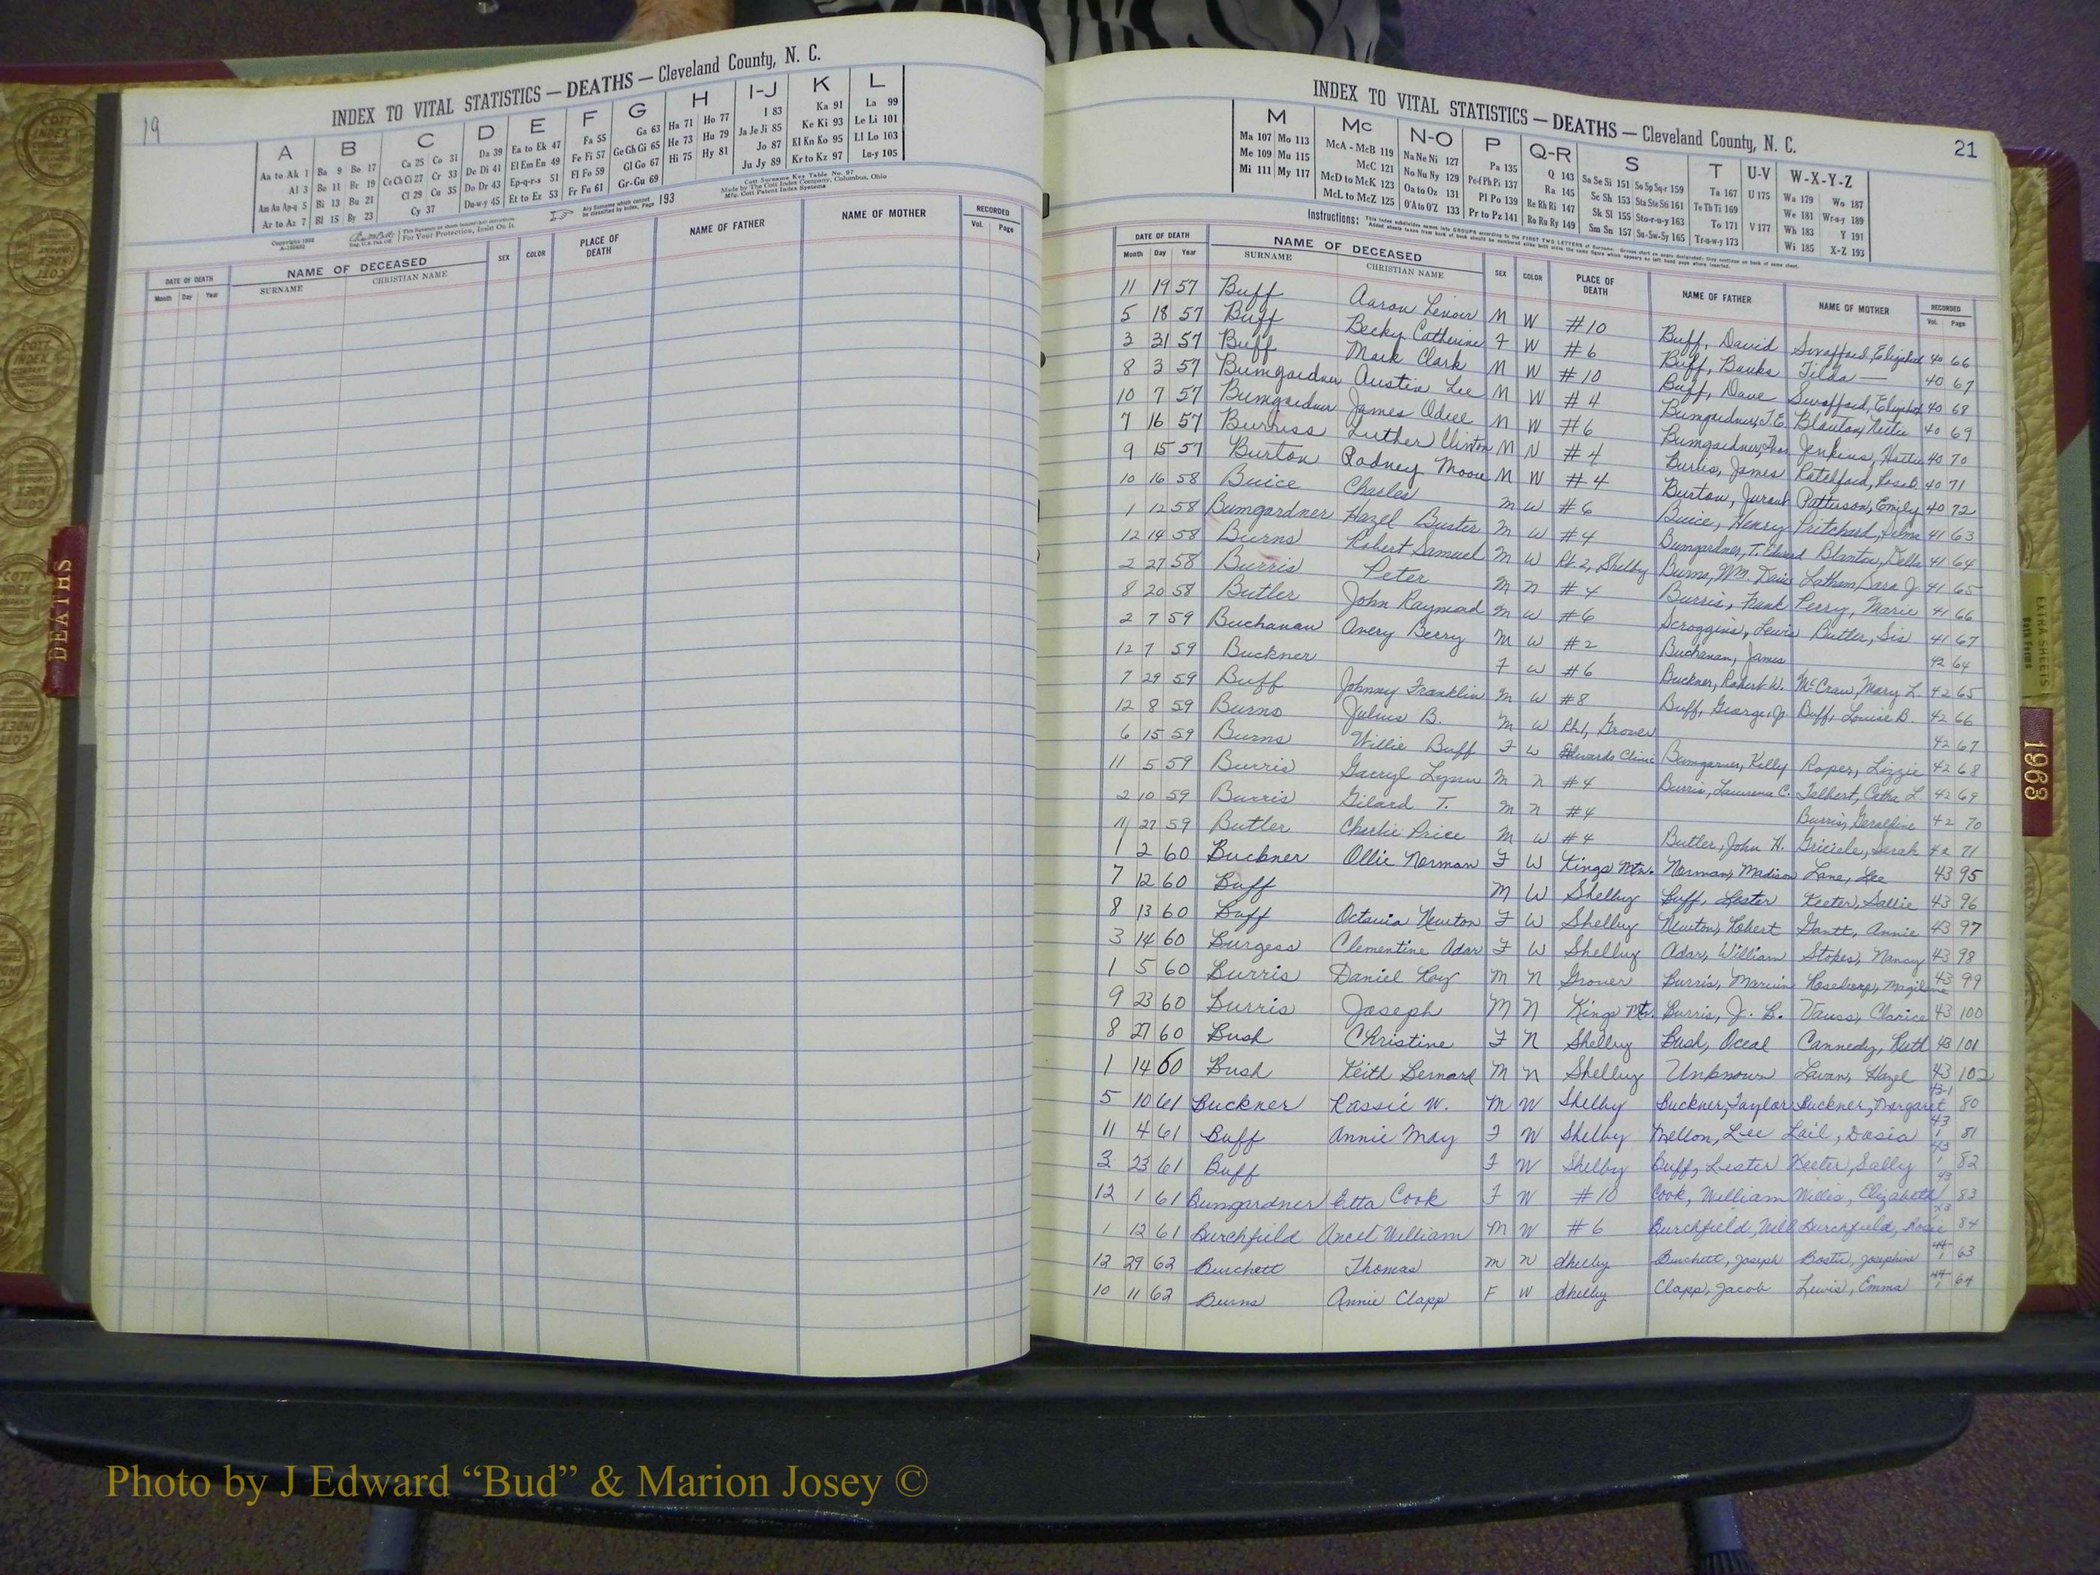 19
INDEX TO VITAL STATISTICS — DEATHS — Cleveland County, N. C.
A B C D E F G H I-J K L
Aa to Ak 1 Ba 9 Bo 17 Ca 25 Co 31 Da 39 Ea to Ek 47 Fa 55 Ga 63 Ha 71 Ho 77 I 83 Ka 91 La 99
Al 3 Be 11 Br 19 Ce Ch Ci 27 Cr 33 De Di 41 El Em En 49 Fe Fi 57 Ge Gh Gi 65 He 73 Hu 79 Ja Je Ji 85 Ke Ki 93 Le Li 101
Am An Ap-q 5 Bi 13 Bu 21 Cl 29 Cu 35 Do Dr 43 Ep-q-r-s 51 Fl Fo 59 Gl Go 67 Hi 75 Hy 81 Jo 87 Kl Kn Ko 95 Ll Lo 103
Ar to Az 7 Bl 15 By 23 Cy 37 Du-w-y 45 Et to Ez 53 Fr Fu 61 Gr-Gu 69 Ju Jy 89 Kr to Kz 97 Lu-y 105
Any Surname which cannot be classified by index, Page 193
Cott Surname Key Table No. 97
Made by The Cott Index Company, Columbus, Ohio
Mfg. Cott Patent Index Systems
DATE OF DEATH NAME OF DECEASED SEX COLOR PLACE OF DEATH NAME OF FATHER NAME OF MOTHER RECORDED
Month Day Year SURNAME CHRISTIAN NAME Vol. Page
INDEX TO VITAL STATISTICS — DEATHS — Cleveland County, N. C. 21
M Mc N-O P Q-R S T U-V W-X-Y-Z
Ma 107 Mo 113 McA - McB 119 Na Ne Ni 127 Pa 135 Q 143 Sa Se Si 151 So Sp Sq-r 159 Ta 167 U 175 Wa 179 Wo 187
Me 109 Mu 115 McC 121 No Nu Ny 129 Pe-f Ph Pi 137 Ra 145 Sc Sh 153 Sta Ste Sti 161 Te Th Ti 169 We 181 Wr-u-y 189
Mi 111 My 117 McD to McK 123 Oa to Oz 131 Pl Po 139 Re Rh Ri 147 Sk Sl 155 Sto-r-u-y 163 To 171 V 177 Wh 183 Y 191
McL to McZ 125 O'A to O'Z 133 Pr to Pz 141 Ro Ru Ry 149 Sm Sn 157 Su-Sw-Sy 165 Tr-u-w-y 173 Wi 185 X-Z 193
DATE OF DEATH NAME OF DECEASED SEX COLOR PLACE OF DEATH NAME OF FATHER NAME OF MOTHER RECORDED
Month Day Year SURNAME CHRISTIAN NAME Vol. Page
11 19 57 Buff Aaron Lenoir M W #10 Buff, David Swafford, Elizabeth 40 66
5 18 57 Buff Becky Catherine F W #6 Buff, Banks Tilda — 40 67
3 31 57 Buff Mark Clark M W #10 Buff, Dave Swafford, Elizabeth 40 68
8 3 57 Bumgardner Austin Lee M W #4 Bumgardner, T.E. Blanton, 40 69
10 7 57 Bumgardner James Odell M W #6 Bumgardner, Jenkins, Hattie 40 70
7 16 57 Burriss Luther Clinton M N #4 James 40 71
9 15 57 Burton Rodney Moore M W #4 Burton, Patterson, Emily 40 72
10 16 58 Buice Charles M W #6 Buice, Henry Pritchard, 41 63
1 12 58 Bumgardner Hazel Buster M W #4 Bumgardner, T. Edward Blanton, Della 41 64
12 14 58 Burns Robert Samuel M W Rt. 2, Shelby Burns, Wm. Latham, Sara J 41 65
2 27 58 Burris Peter M N #4 Burris, Frank Perry, Marie 41 66
8 20 58 Butler John Raymond M W #6 Scroggins, Lewis Butler, Sis 41 67
2 7 59 Buchanan Avery Berry M W #2 Buchanan, James 42 64
12 7 59 Buckner F W #6 Buckner, Robert W. McCraw, Mary L. 42 65
7 29 59 Buff Johnny Franklin M W #8 Buff, George, Jr. Buff, Louise B. 42 66
12 8 59 Burns Julius B. M W Rt 1, Grover 42 67
6 15 59 Burns Willie Buff F W Edwards Clinic Bumgarner, Kelly Roper, Lizzie 42 68
11 5 59 Burris Garryl Lynn M N #4 Burris, Laurena C. Talbert, Cetha L. 42 69
2 10 59 Burris Gilard T. M N #4 Burris, Geraldine 42 70
11 27 59 Butler Charlie Price M W #4 Butler, John H. Sarah 42 71
1 2 60 Buckner Ollie Norman F W Kings Mtn. Norman, Madison Lane, Lee 43 95
7 12 60 Buff M W Shelby Buff, Lester Keeter, Sallie 43 96
8 13 60 Buff Octavia Newton F W Shelby Newton, Robert Gantt, Annie 43 97
3 14 60 Burgess Clementine Adar F W Shelby Adar, William Stokes, Nancy 43 98
1 5 60 Burris Daniel Roy M N Grover Burris, Marvin 43 99
9 23 60 Burris Joseph M N Kings Mtn. Burris, J. B. Vauss, Clarice 43 100
8 27 60 Bush Christine F N Shelby Bush, Oceal Cannedy, Ruth 43 101
1 14 60 Bush Keith Bernard M N Shelby Unknown Lavan, Hazel 43 102
5 10 61 Buckner Rassie W. M W Shelby Buckner, Taylor Buckner, Margaret 43-1 80
11 4 61 Buff Annie May F W Shelby Mellon, Lee Lail, Dosia 43 1 81
3 23 61 Buff F W Shelby Buff, Lester Keeter, Sally 43 1 82
12 1 61 Bumgardner Etta Cook F W #10 Cook, William Willis, Elizabeth 43 83
1 12 61 Burchfield Ancel William M W #6 Burchfield, Will Burchfield, Rosie 43 84
12 29 62 Burchett Thomas M N Shelby Burchett, Joseph Bostic, Josephine 44 1 63
10 11 62 Burns Annie Clapp F W Shelby Clapp, Jacob Lewis, Emma 44 1 64
DEATHS
EXTRA SHEETS
1963
Photo by J Edward “Bud” & Marion Josey ©